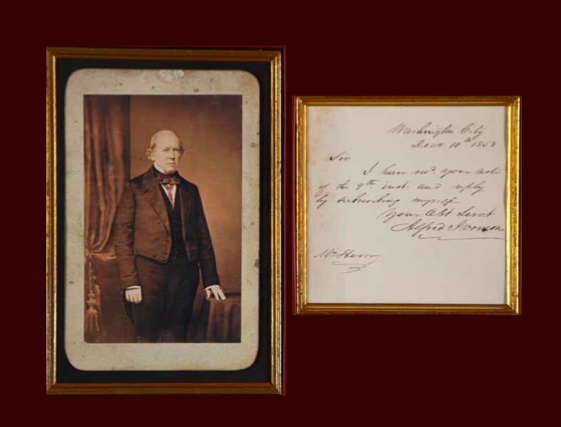 Washington City
Decr 10th 1858
Sir
I have recd your note
of the 9th inst. and reply
by subscribing myself
Your Obt Servt
Alfred Iverson
Wm Henry